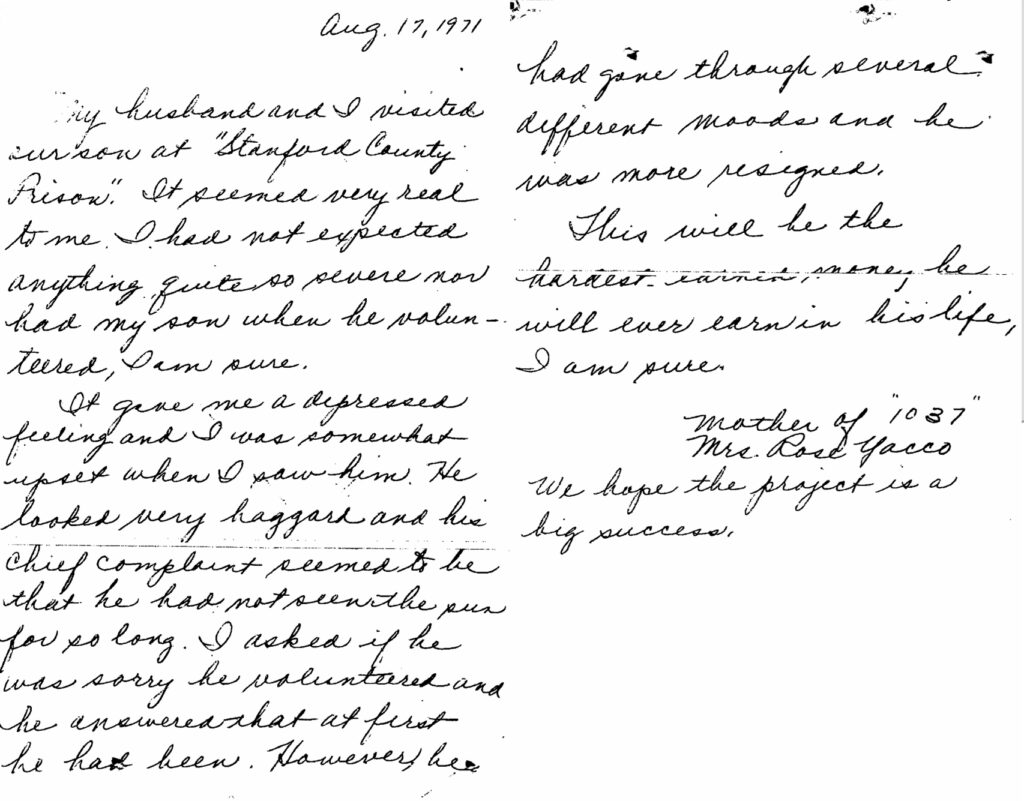 Aug. 17, 1971
My husband and I visited
our son at "Stanford County
Prison". It seemed very real
to me. I had not expected
anything quite so severe nor
had my son when he volun-
teered, I am sure.
It gave me a depressed
feeling and I was somewhat
upset when I saw him. He
looked very haggard and his
chief complaint seemed to be
that he had not seen the sun
for so long. I asked if he
was sorry he volunteered and
he answered that at first
he had been. However, he
had gone through several
different moods and he
was more resigned.
This will be the
hardest earnin, money he
will ever earn in his life,
I am sure.
Mother of "1037"
Mrs. Rose Yacco
We hope the project is a
big success.